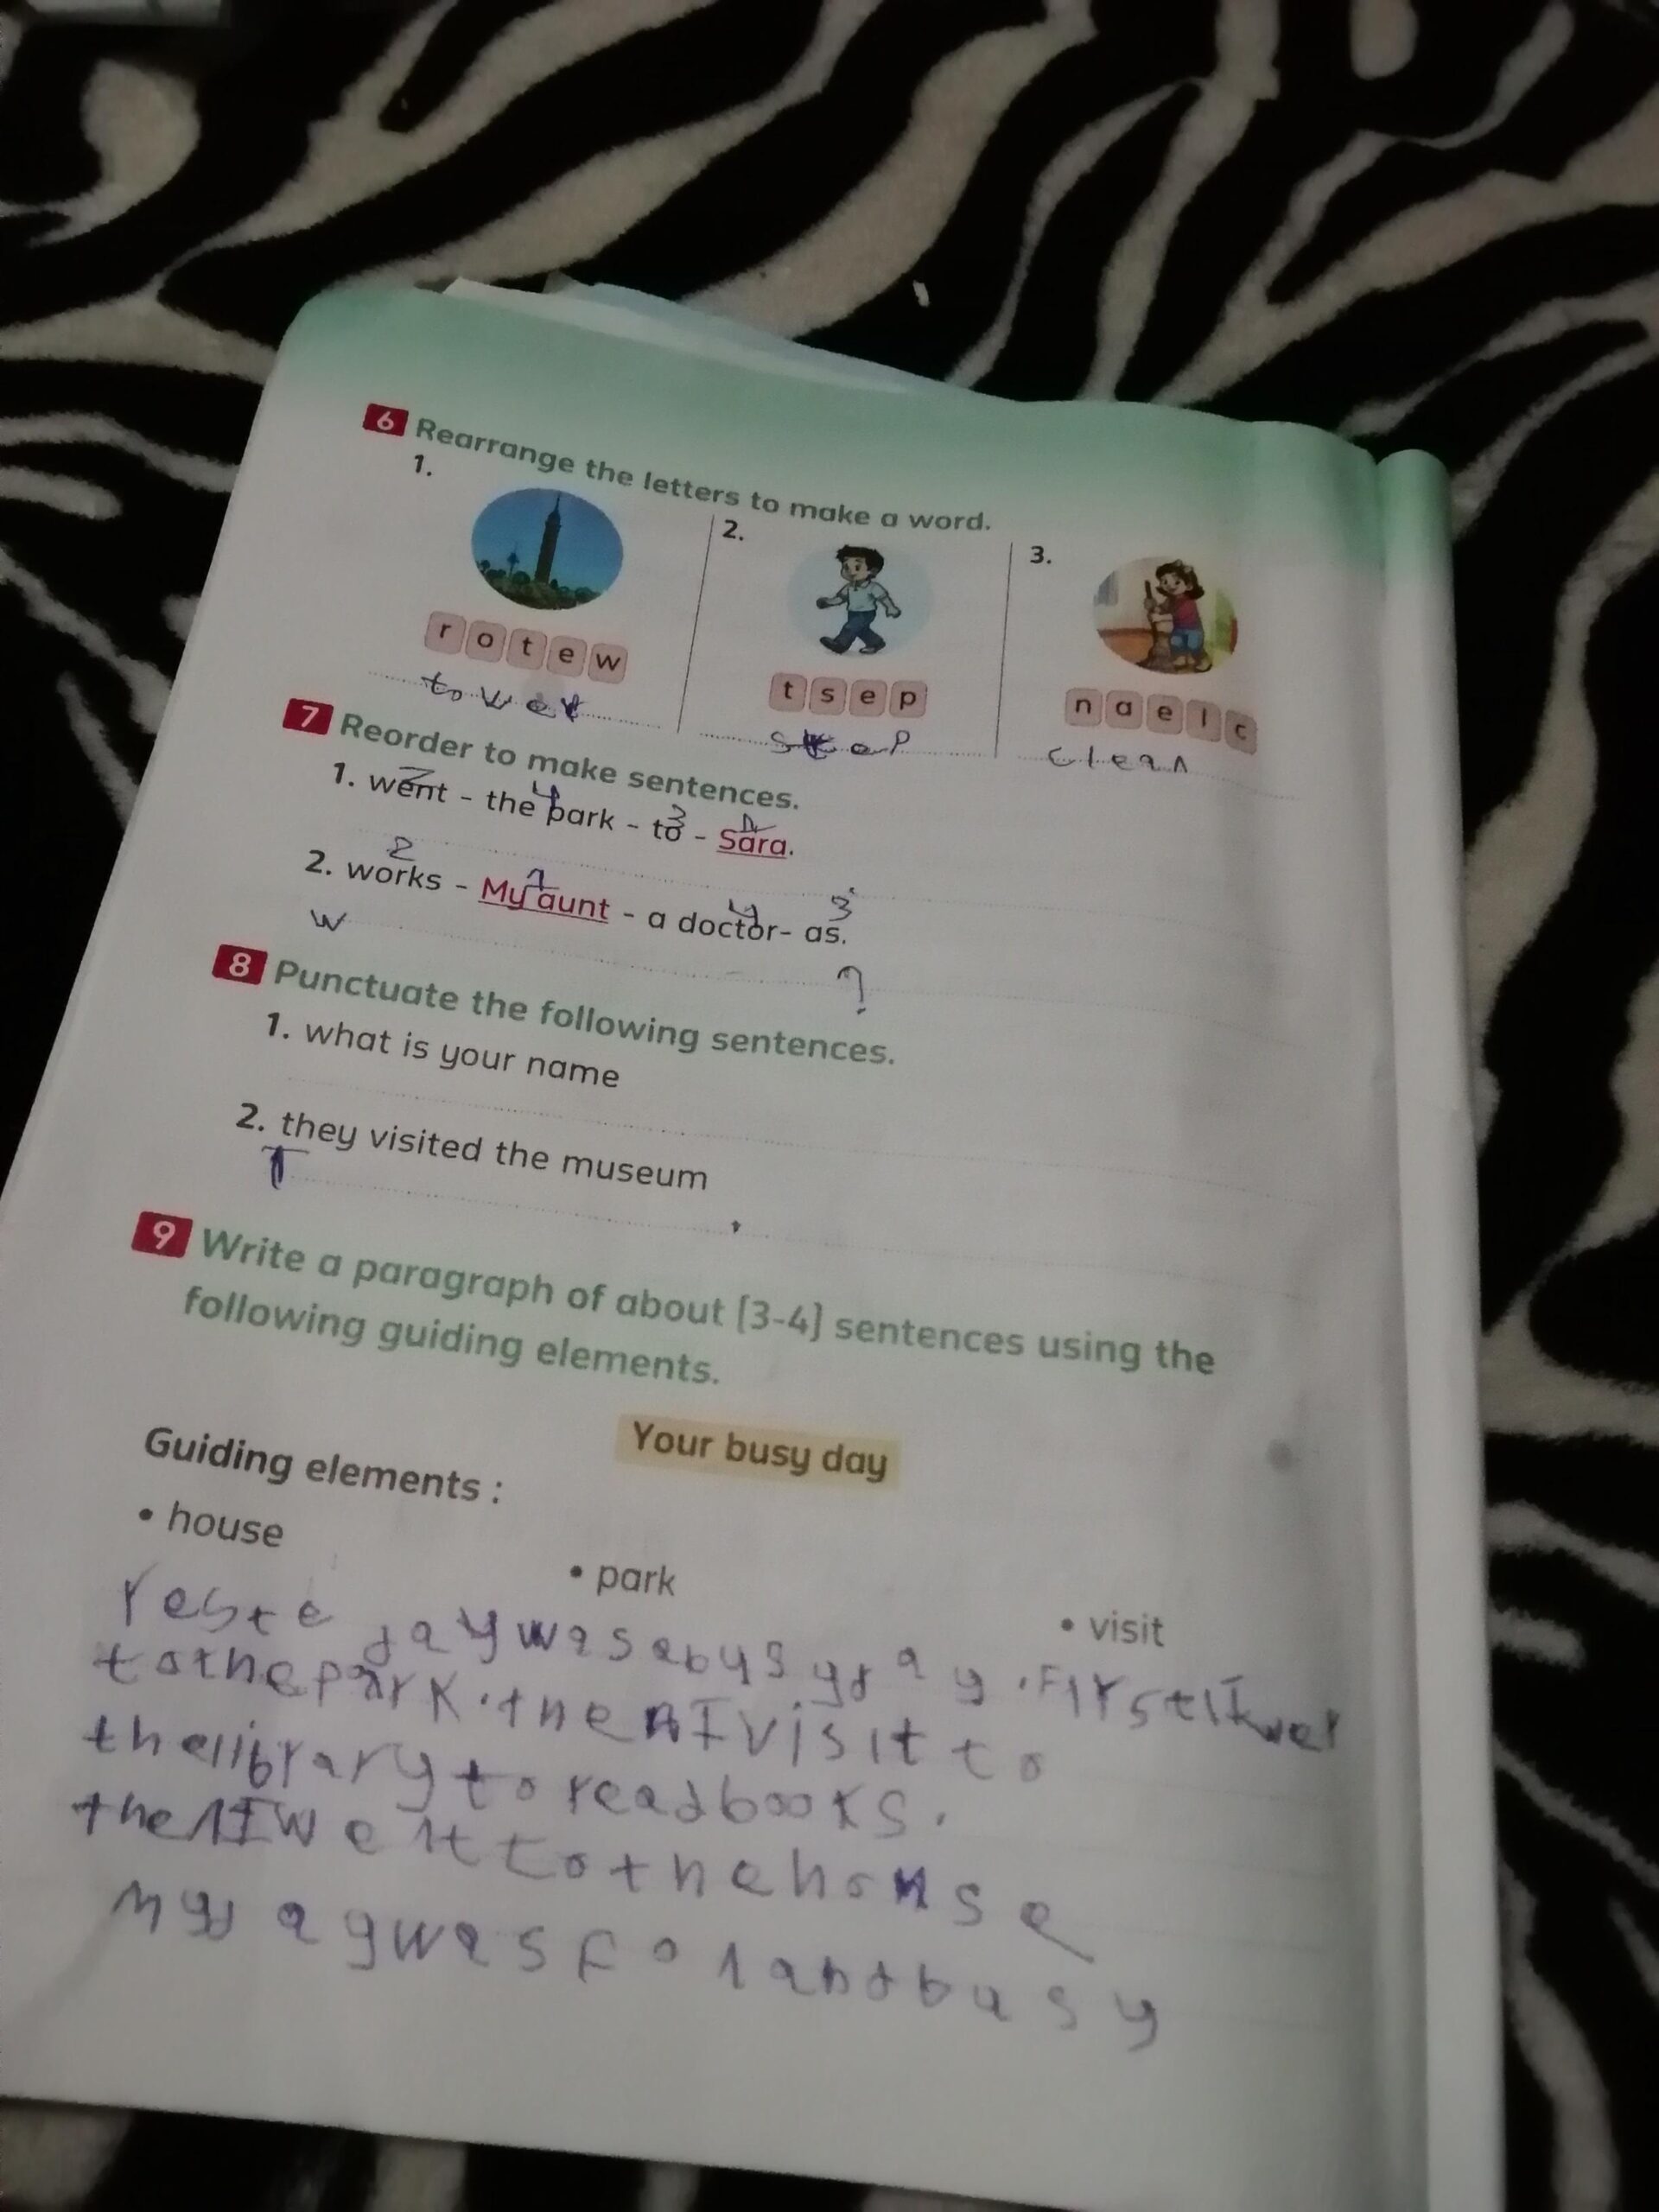 6 Rearrange the letters to make a word.
1.
2.
3.
r o t e w
t s e p
n a e l c
tower
step
clean
7 Reorder to make sentences.
2 4 3 1
1. went - the park - to - Sara.
2 1 4 3
2. works - My aunt - a doctor- as.
W ?
8 Punctuate the following sentences.
1. what is your name
2. they visited the museum
T .
9 Write a paragraph of about [3-4] sentences using the
following guiding elements.
Your busy day
Guiding elements :
• house • park • visit
Yeste day was a busy day. First I wet
to the park. then I visit to
the library to read books.
then I went to the house
My day was fon and busy